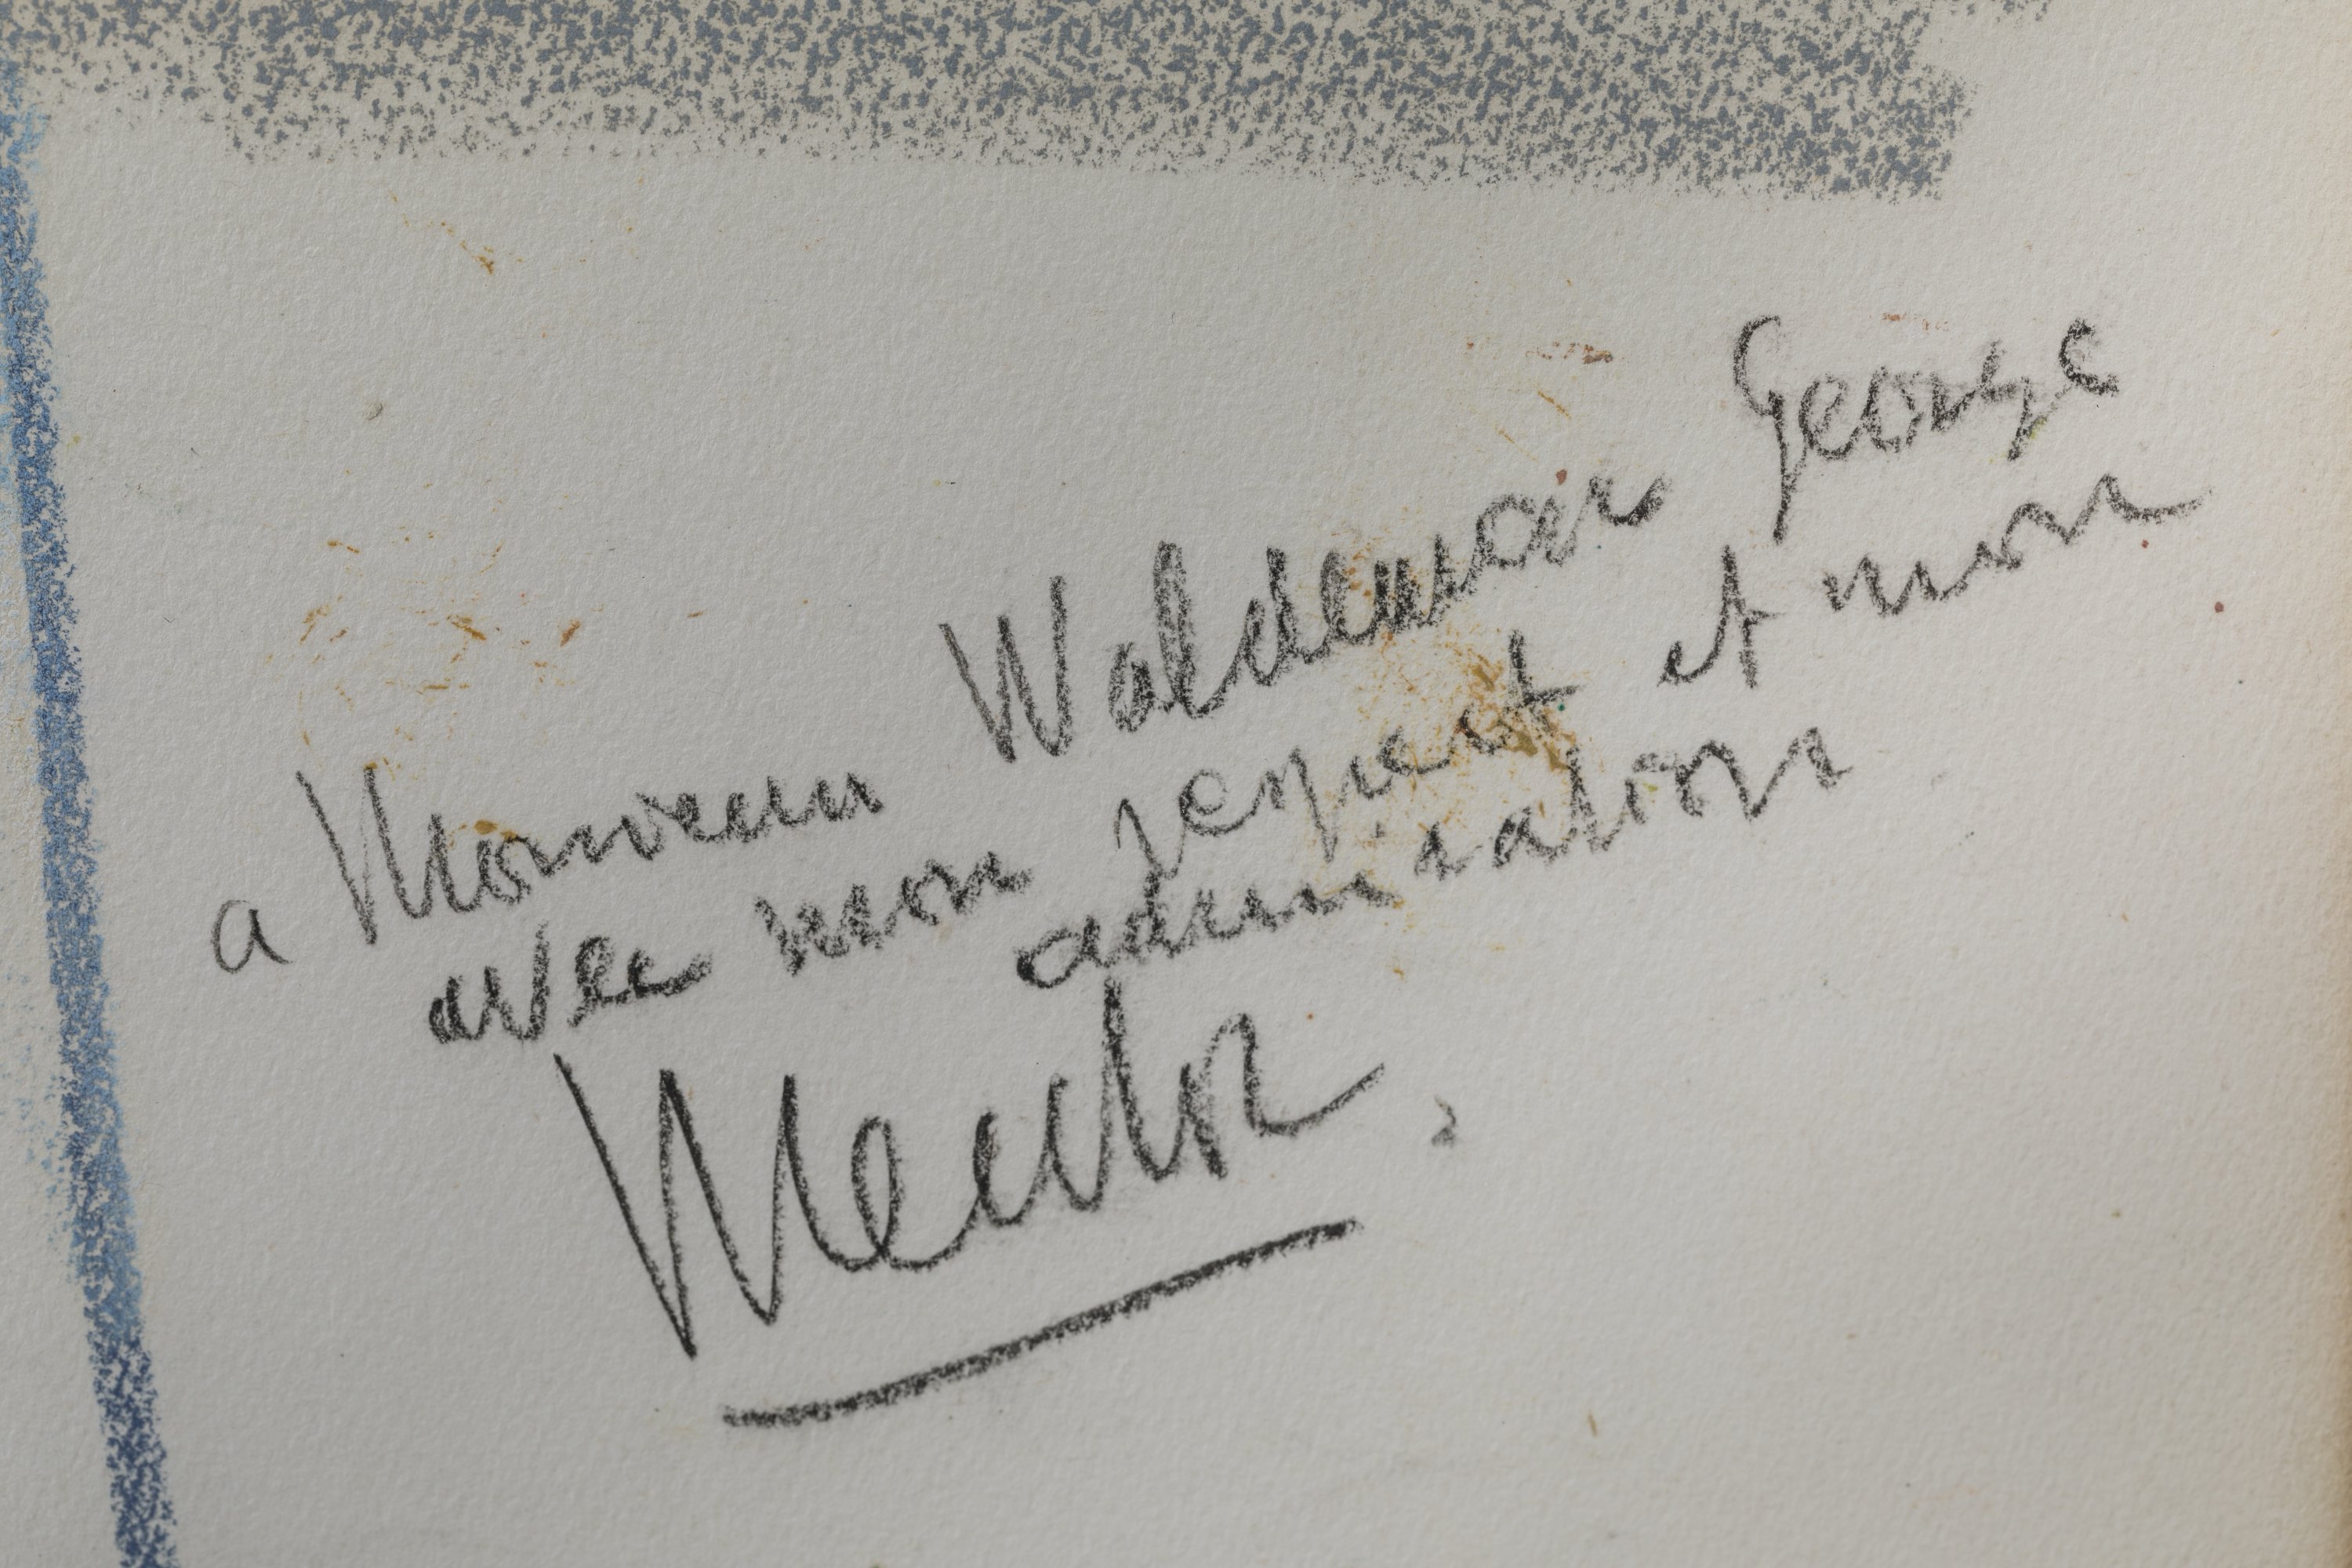 a Monsieur Waldemar George
avec mon respect et mon
admiration